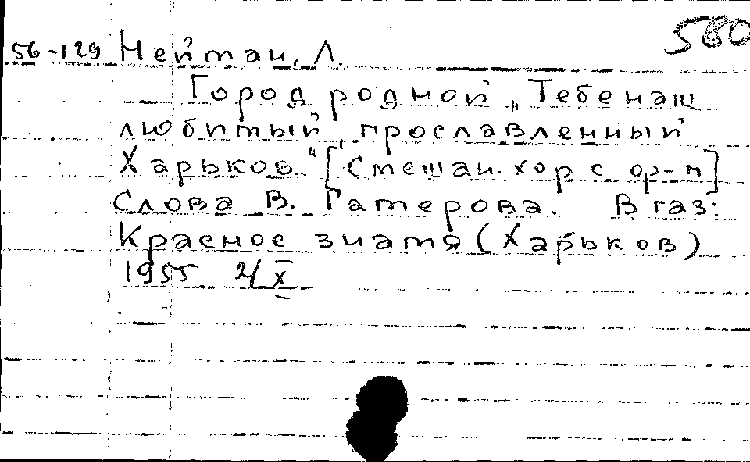 580
56-129 Нейман, Л.
Город родной „Тебе наш
любимый, прославленный
Харьков" [Смешан. хор с ор-м]
Слова В. Гатерова. В газ:
Красное знамя (Харьков)
1955 2/X